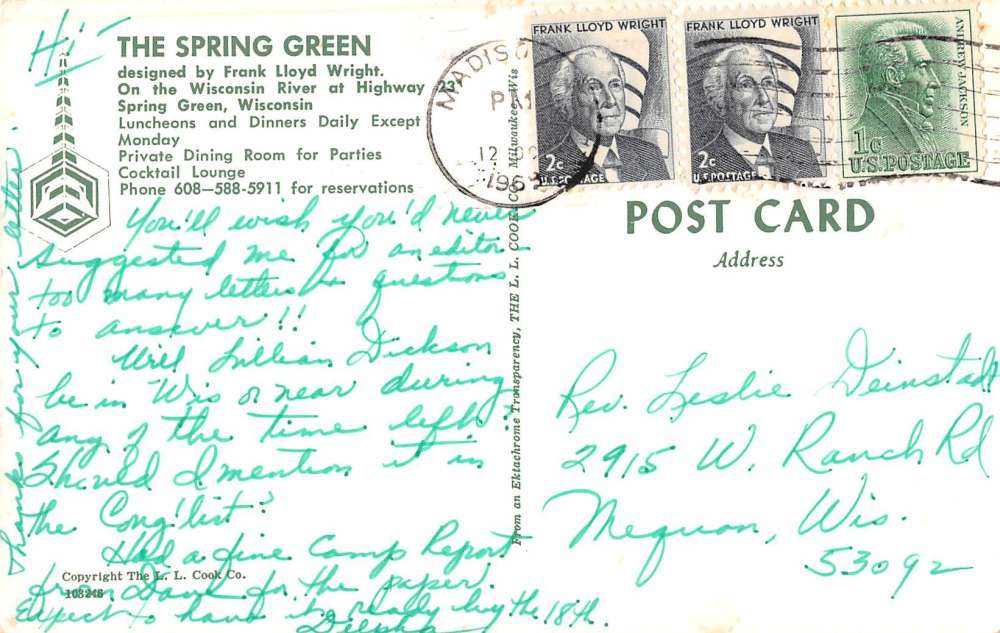 Hi
THE SPRING GREEN
designed by Frank Lloyd Wright.
On the Wisconsin River at Highway 23
Spring Green, Wisconsin
Luncheons and Dinners Daily Except
Monday
Private Dining Room for Parties
Cocktail Lounge
Phone 608—588-5911 for reservations
You'll wish you'd never
suggested me for an editor
too many letters & questions
to answer!!
Will Lillian Dickson
be in Wis or near during
any of the time left?
Should I mention it in
the Cong'list?
Had a fine Camp Report
from Dave for the paper.
Expect to have it ready by the 18th.
Thanks for your letter.
Copyright The L. L. Cook Co.
103246
From an Ektachrome Transparency, THE L. L. COOK CO., Milwaukee, Wis
MADISON
PM
12
196
FRANK LLOYD WRIGHT
2c
U.S.POSTAGE
FRANK LLOYD WRIGHT
2c
U.S.POSTAGE
ANDREW JACKSON
1c
U.S.POSTAGE
POST CARD
Address
Rev. Leslie Deinstadt
2915 W. Ranch Rd
Mequon, Wis.
53092